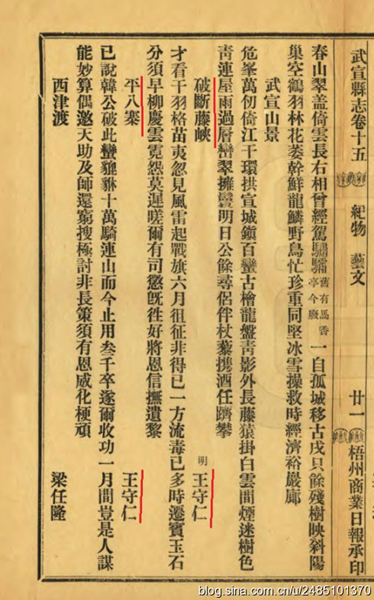 武宣縣志卷十五 紀物 藝文 廿一 梧州商業日報承印
春山翠蓋倚雲長右相曾經駕驌驦舊有馬香亭今廢一自孤城移古戍只餘殘樹映斜陽
巢空鶴羽林花萎幹鮮龍鱗野鳥忙珍重同堅冰雪操救時經濟裕嚴廊
武宣山景
危峯萬仞倚江干環拱宣城鎮百蠻古檜龍盤靑影外長藤猿掛白雲間煙迷樹色
靑連屋雨過層巒翠擁鬟明日公餘尋侶伴杖藜携酒任躋攀
破斷藤峽 明 王守仁
才看干羽格苗夷忽見風雷起戰旗六月徂征非得已一方流毒已多時遷賓玉石
分須早柳慶雲霓怨莫遲嗟爾有司懲旣徃好將恩信撫遺黎
平八寨 王守仁
已說韓公破此蠻貔貅十萬騎連山而今止用叁千卒遂爾收功一月間豈是人謀
能妙算偶邀天助及師還窮搜極討非長策須有恩威化梗頑
西津渡 梁任隆
blog.sina.com.cn/u/2485101370